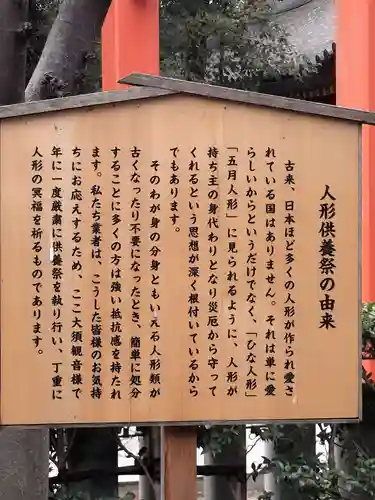 人形供養祭の由来
古来、日本ほど多くの人形が作られ愛さ
れている国はありません。それは単に愛
らしいからというだけでなく、「ひな人形」
「五月人形」に見られるように、人形が
持ち主の身代わりとなり災厄から守って
くれるという思想が深く根付いているから
でもあります。
そのわが身の分身ともいえる人形類が
古くなったり不要になったとき、簡単に処分
することに多くの方は強い抵抗感を持たれ
ます。私たち業者は、こうした皆様のお気持
ちにお応えするため、ここ大須観音様で
年に一度厳粛に供養祭を執り行い、丁重に
人形の冥福を祈るものであります。